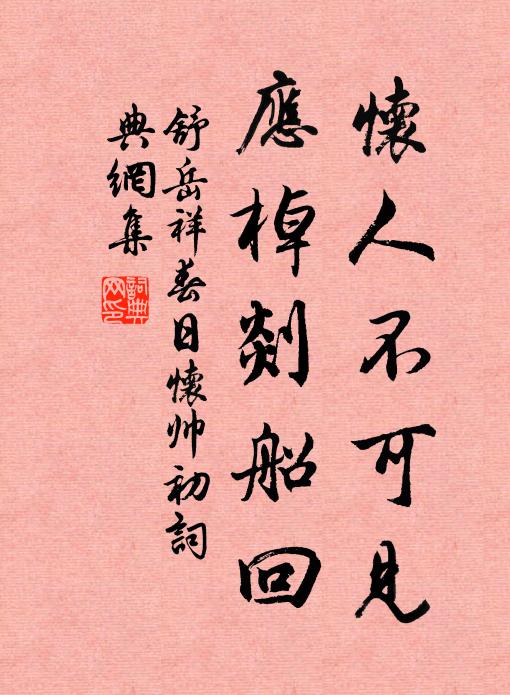 懷人不可見
應棹剡船回
舒岳祥春日懷帥初詞
典網集
詞典
网印